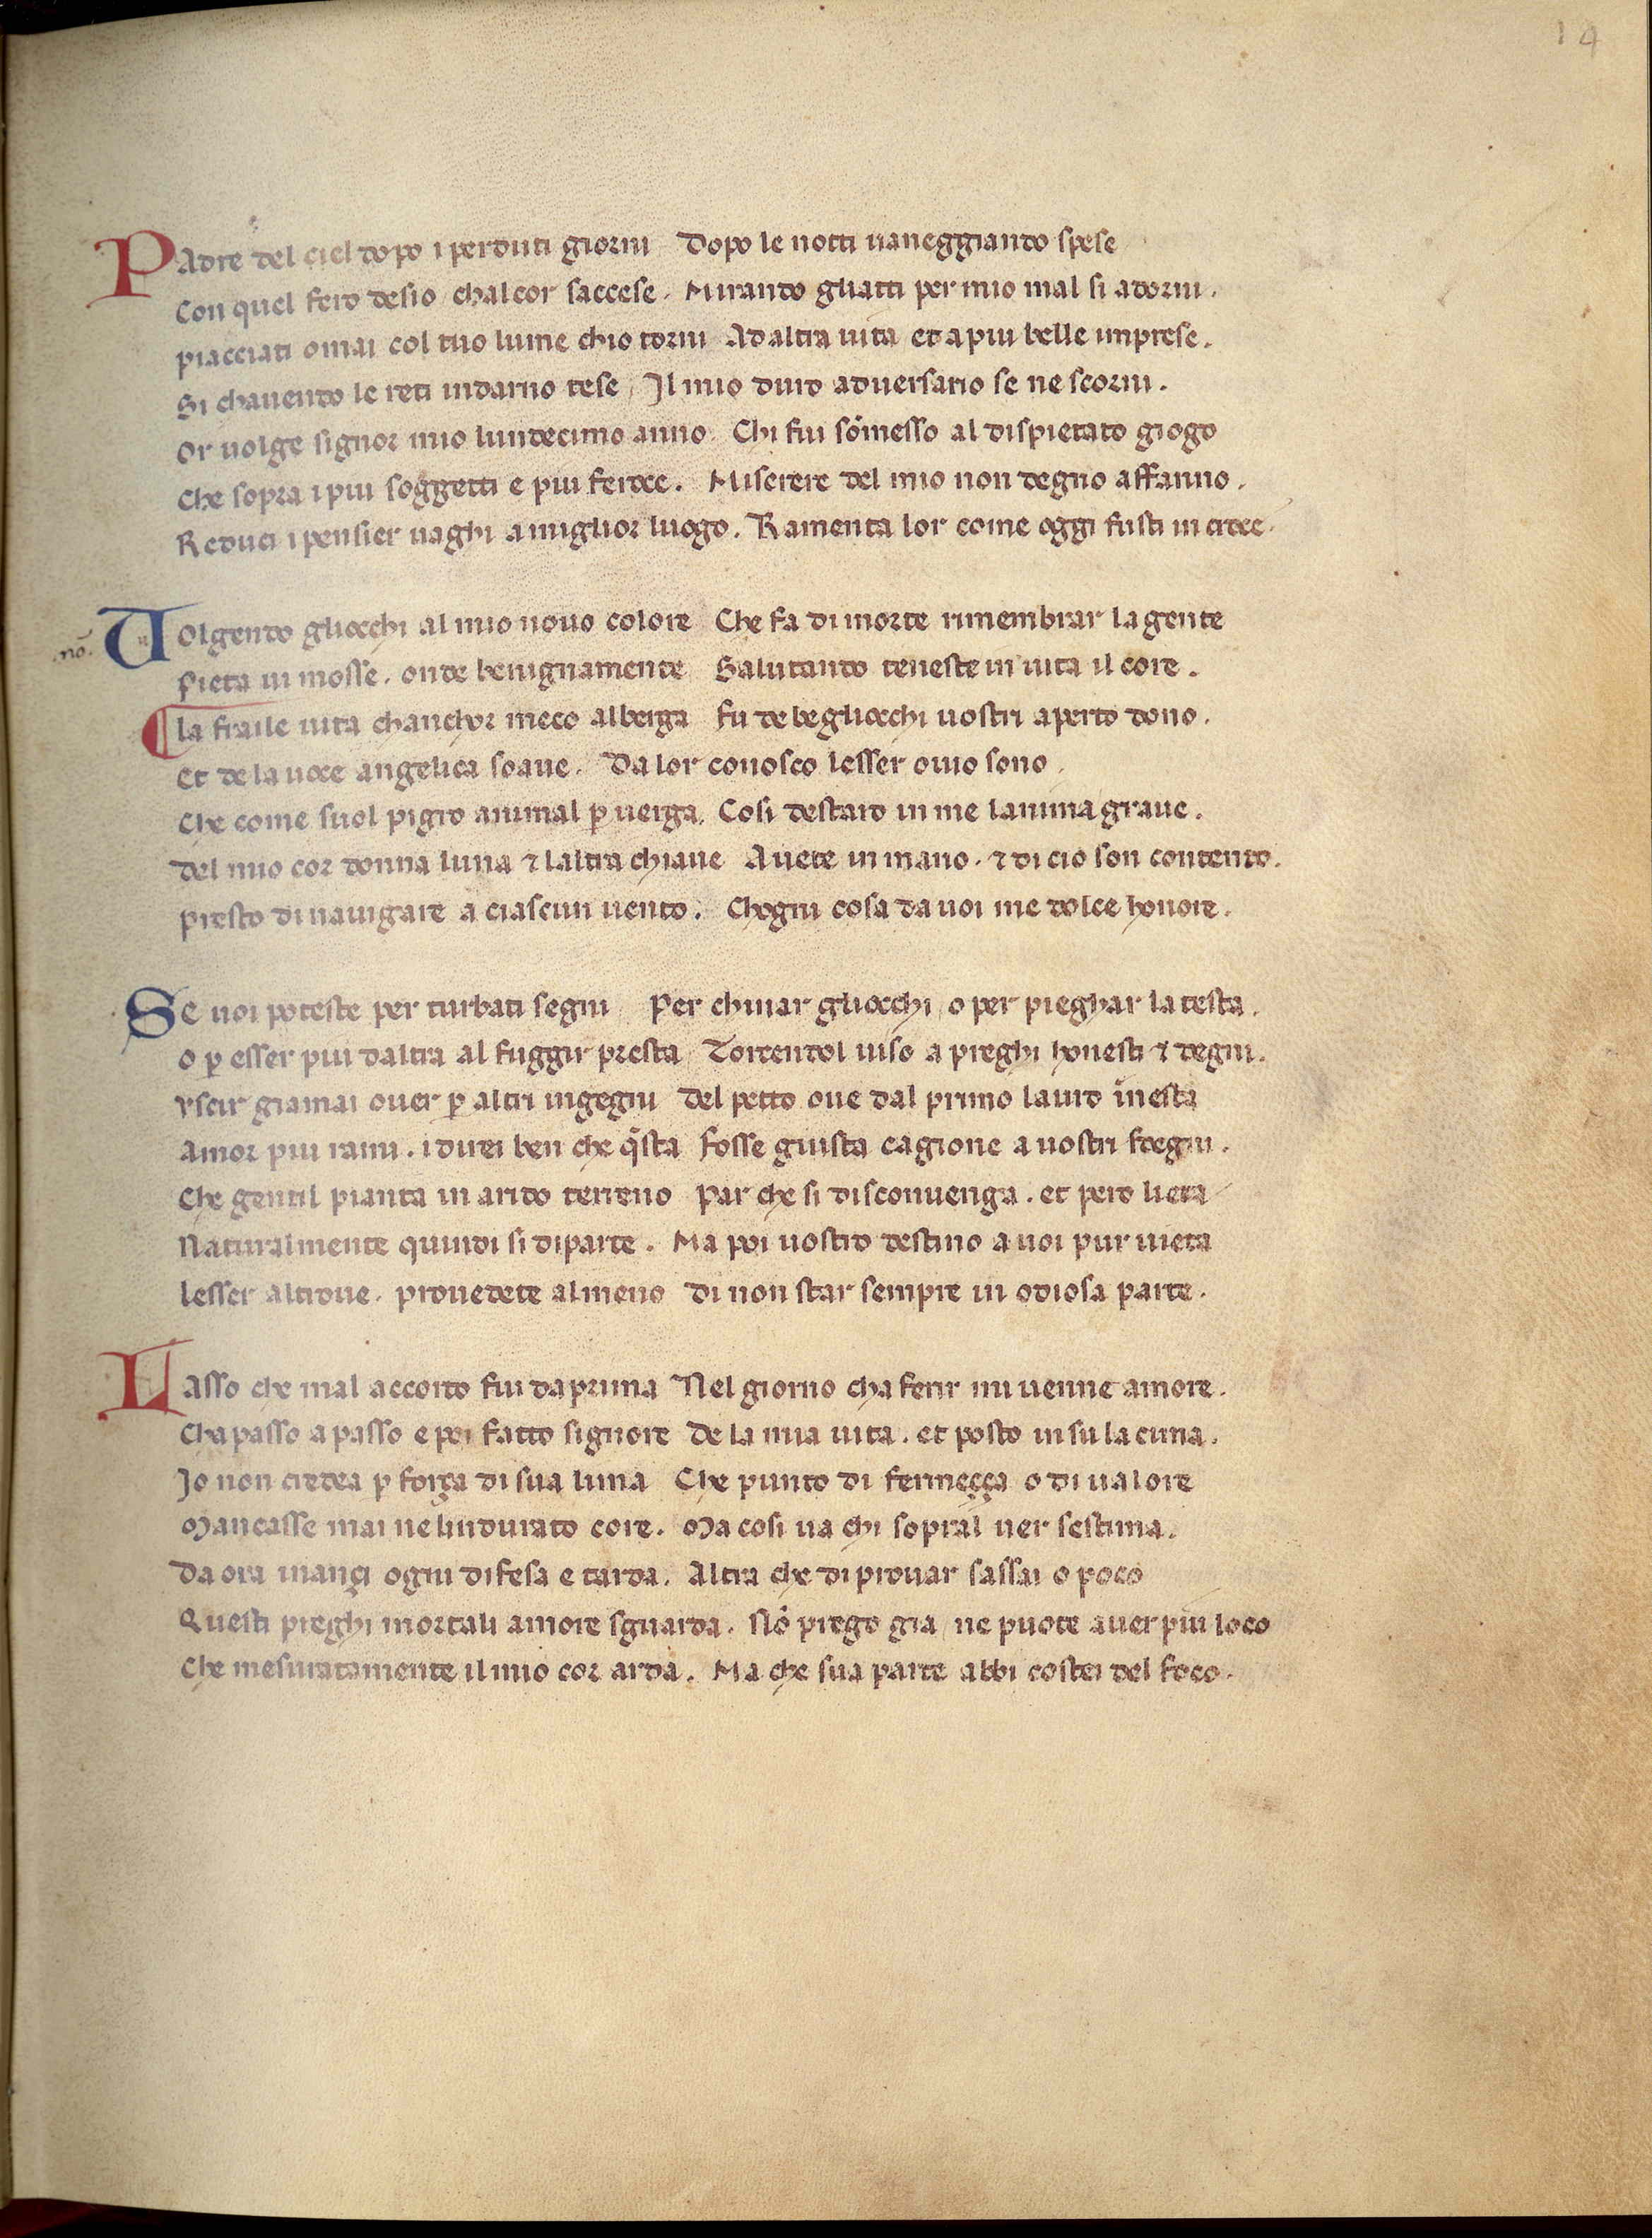 14
PAdre del ciel dopo i perduti giorni Dopo le notti uaneggiando spese
Con quel fero desio chalcor saccese. Mirando gliatti per mio mal si adorni.
piacciati omai col tuo lume chio torni Ad altra uita et a piu belle imprese.
Si chauendo le reti indarno tese Il mio duro aduersario se ne scorni.
Or uolge signor mio lundecimo anno. Chi fui sōmesso al dispietato giogo
Che sopra i piu soggetti e piu feroce. Miserere del mio non degno affanno.
Reduci i pensier uaghi a miglior luogo. Ramenta lor come oggi fusti in croce.
UOlgendo gliocchi al mio nouo colore Che fa di morte rimembrar la gente
.nō.
Pieta ui mosse. onde benignamente Salutando teneste in uita il core.
la fraile uita chanchor meco alberga fu de begliocchi uostri aperto dono.
Et de la uoce angelica soaue. Da lor conosco lesser ouio sono.
Che come suol pigro animal ꝑ uerga. Cosi destaro in me lanima graue.
Del mio cor donna luna ⁊ laltra chiaue Auete in mano. ⁊ di cio son contento.
presto di nauigare a ciascun uento. Chogni cosa da uoi me dolce honore.
SE uoi poteste per turbati segni Per chinar gliocchi, o per pieghar la testa.
O ꝑ esser piu daltra al fuggir presta Torcendol uiso a preghi honesti ⁊ degni.
Vscir giamai ouer ꝑ altri ingegni Del petto oue dal primo lauro īnesta
Amor piu rami. i direi ben che q̄sta fosse giusta cagione a uostri sdegni.
Che gentil pianta in arido terreno Par che si disconuenga. et pero lieta
Naturalmente quindi si diparte. Ma poi uostro destino a uoi pur uieta
lesser altroue. prouedete almeno Di non star sempre in odiosa parte.
LAsso che mal accorto fui da prima Nel giorno cha ferir mi uenne amore.
Cha passo a passo e poi fatto signore De la mia uita. et posto in su la cima.
Io non credea ꝑ força di sua lima Che punto di fermeçça o di ualore
Mancasse mai ne lindurato core. Ma cosi ua chi sopral uer sestima.
Da ora inançi ogni difesa e tarda. Altra che di prouar sassai o poco
Questi preghi mortali amore sguarda. Nō prego gia, ne puote auer piu loco
Che mesuratamente il mio cor arda. Ma che sua parte abbi costei del foco.